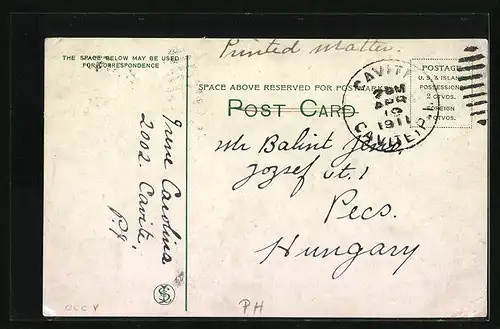 Printed Matter.
THE SPACE BELOW MAY BE USED
FOR CORRESPONDENCE
SPACE ABOVE RESERVED FOR POSTMARK
POST CARD
POSTAGE
U. S. & ISLAND
POSSESSIONS
2 CTVOS.
FOREIGN
CTVOS.
CAVITE
PM
APR
1911
CAVITE, P. I.
Irene Carolina
2002 Cavite,
P.I.
Mr Balint Jenö
Jozsef ut. 1
Pecs.
Hungary
PH